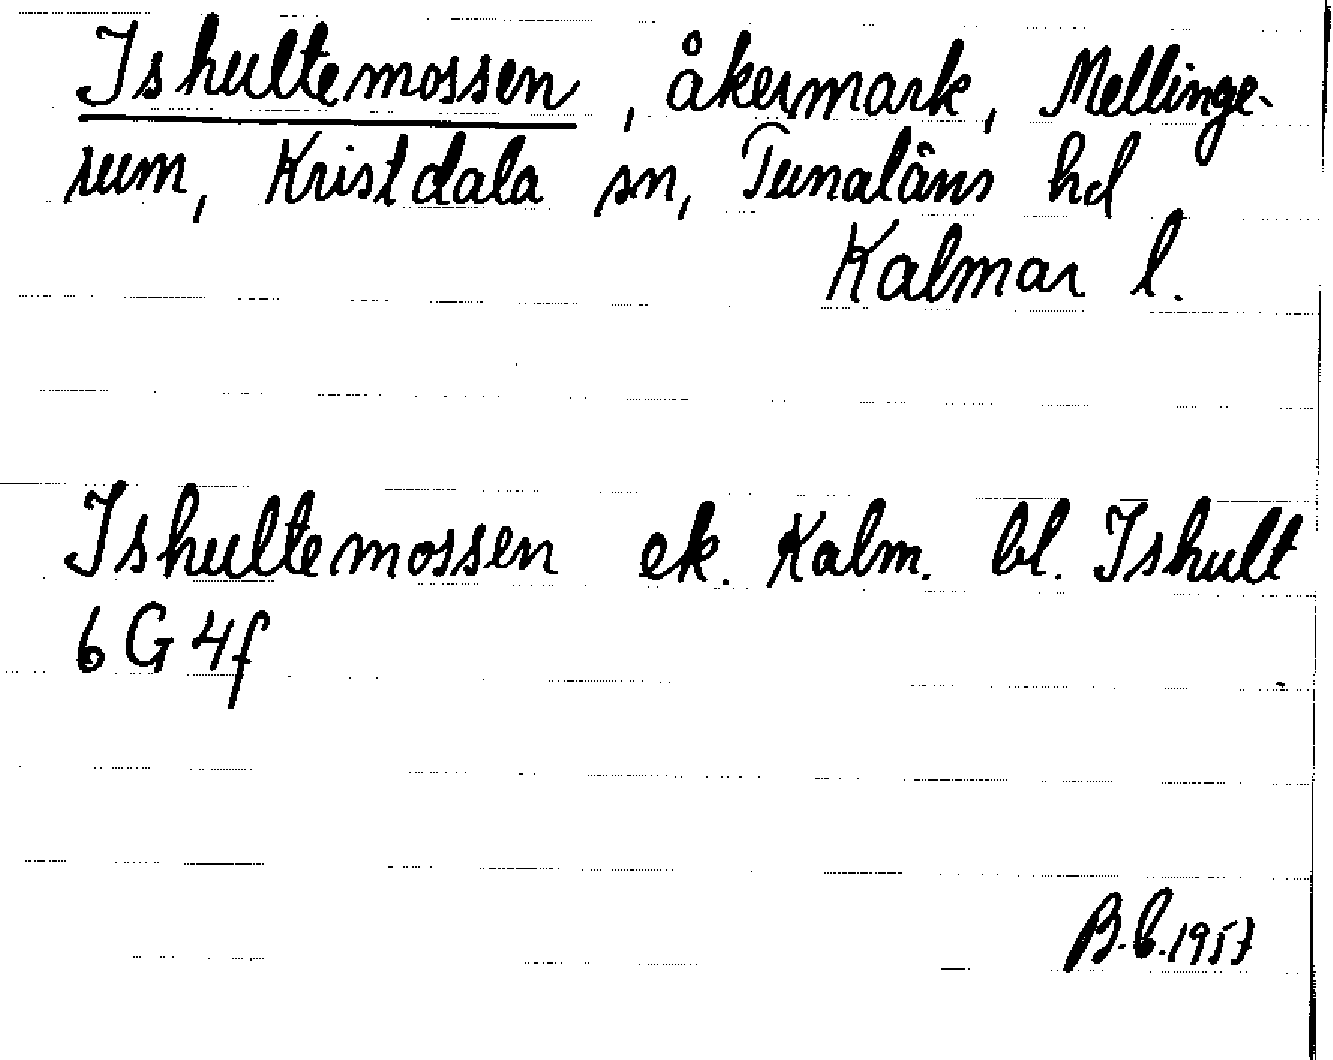 Ishultemossen, åkermark, Mellinge-
rum, Kristdala sn, Tunaläns hd
Kalmar l.
Ishultemossen ek. Kalm. bl. Ishult
6 G 4f
B.b.1957